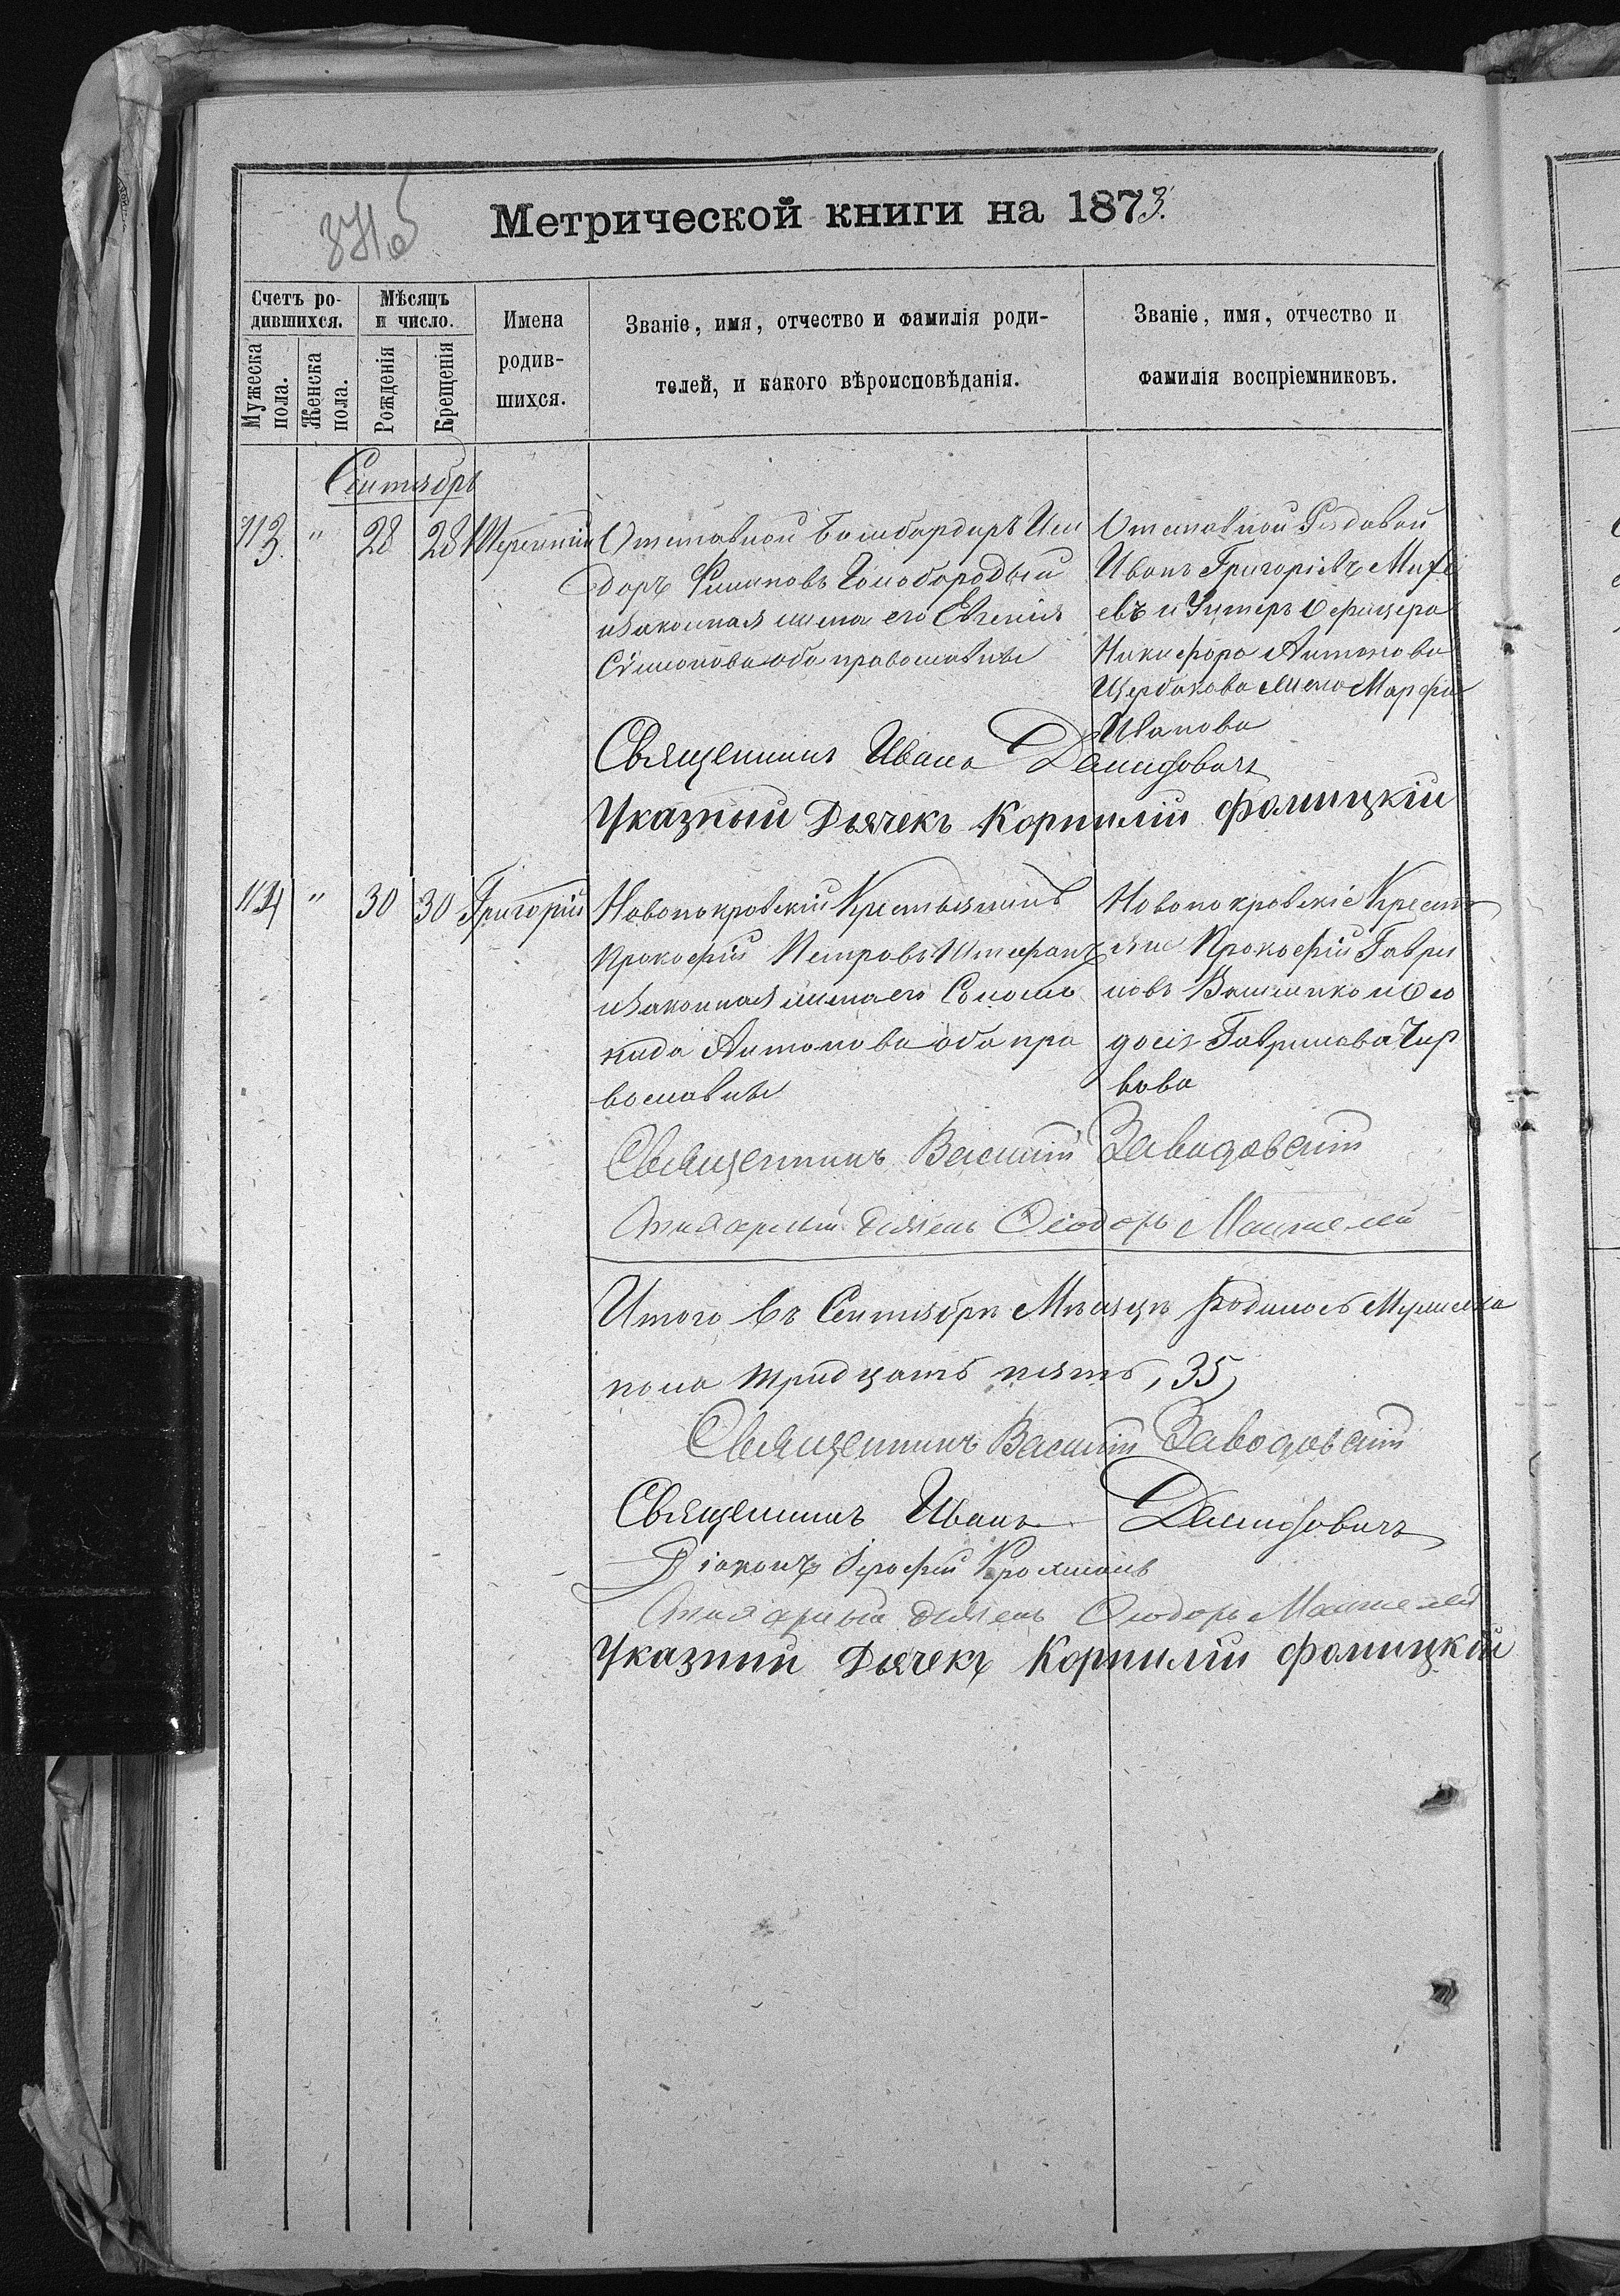 Метрической книги на 1873.
Счетъ ро-
дившихся.
Мужеска
пола.
Женска
пола.
Мѣсяцъ
и число.
Рожденія
Крещенія
Имена
родив-
шихся.
Званіе, имя, отчество и фамилія роди-
телей, и какого вѣроисповѣданія.
Званіе, имя, отчество и
фамилія воспріемниковъ.
Сентябрь
113. " 28 28
Отставной бомбардиръ Иси
доръ Филиповъ Голобородый
изаконная жена его Евгенія
Сѵмонова оба православны
Отставной Рядовой
Иванъ Григоріевъ Михе
евъ и Унтеръ Офицера
Никифора Антонова
Щербакова жена Марфа
Иванова
Священникъ Иванъ
Указный Дьячекъ Корнилій Фолицкій
114 " 30 30 Григорій
Новопокровскій Крестьянинъ
Прокофій Петровъ Штефанъ
изаконная жена его Соломо
нида Антонова оба пра
вославны
Новопокровскіе Крестъ
яне Прокофій Гаври
ловъ и Ѳео
досія Гаврилова
кова
Священникъ Василій Заводовскій
Ѳеодоръ
Итого въ Сентябрѣ Мѣсяцѣ родилось Мужеска
пола тридцать пять, 35,
Священникъ Василій Заводовскій
Священникъ Иванъ
Діаконъ
Ѳеодоръ
Указный Дьячекъ Корнилій Фолицкій